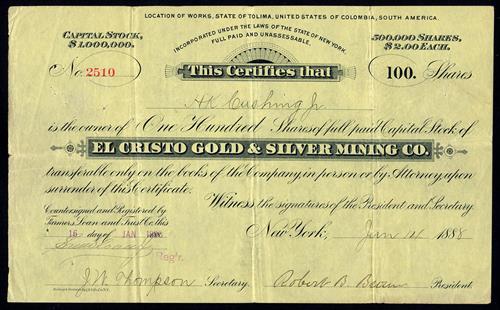 LOCATION OF WORKS, STATE OF TOLIMA, UNITED STATES OF COLOMBIA, SOUTH AMERICA.
CAPITAL STOCK, $1,000,000.
INCORPORATED UNDER THE LAWS OF THE STATE OF NEW YORK.
FULL PAID AND UNASSESSABLE.
500,000 SHARES, $2.00 EACH.
No. 2510
This Certifies that
100. Shares
A K Cushing Jr
is the owner of One Hundred Shares of full paid Capital Stock of
EL CRISTO GOLD & SILVER MINING CO.
transferable only on the books of the Company in person or by Attorney, upon
surrender of this Certificate.
Witness the signatures of the President and Secretary
Countersigned and Registered by
Farmers Loan and Trust Co. this
16 day of JAN 1888
New York, Jan 14 1888
Reg'r.
J. W. Thompson Secretary.
Robert B. President.